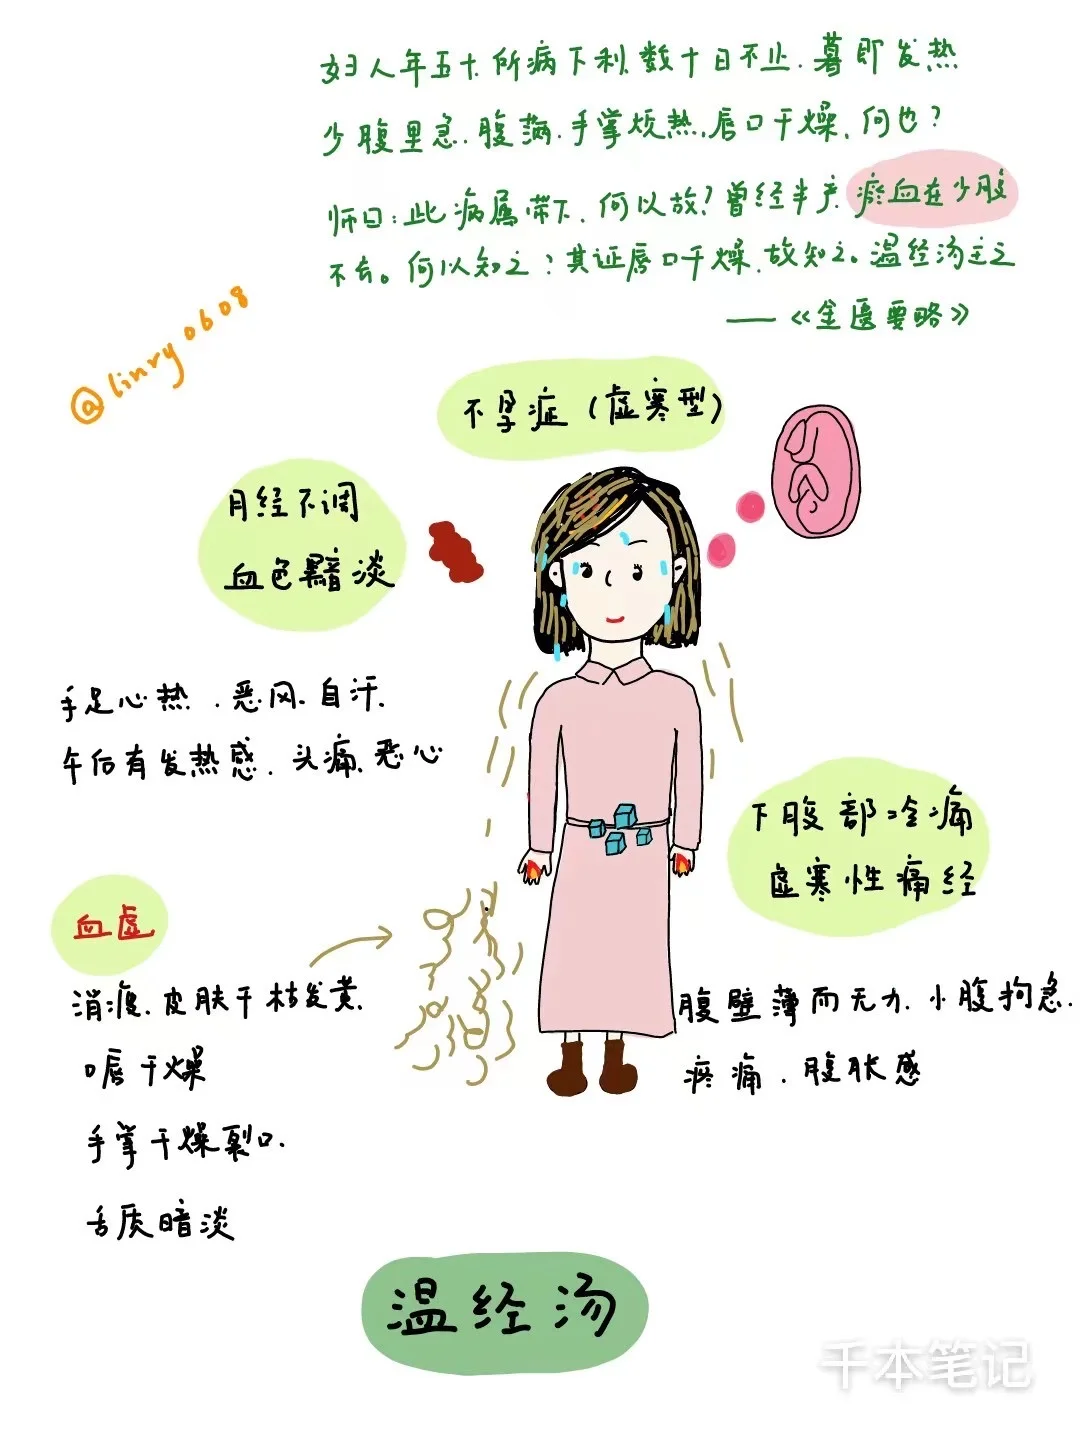 妇人年五十,所病下利,数十日不止.暮即发热
少腹里急.腹满.手掌烦热.唇口干燥.何也?
师曰:此病属带下.何以故?曾经半产.瘀血在少腹
不去。何以知之?其证唇口干燥.故知之。温经汤主之
——《金匮要略》
@linry0608
不孕症(虚寒型)
月经不调
血色黯淡
手足心热.恶风.自汗.
午后有发热感.头痛.恶心
下腹部冷痛
虚寒性痛经
血虚
消瘦.皮肤干枯发黄.
口唇干燥
手掌干燥裂口.
舌质暗淡
腹壁薄而无力.小腹拘急.
疼痛.腹胀感
温经汤
千本笔记